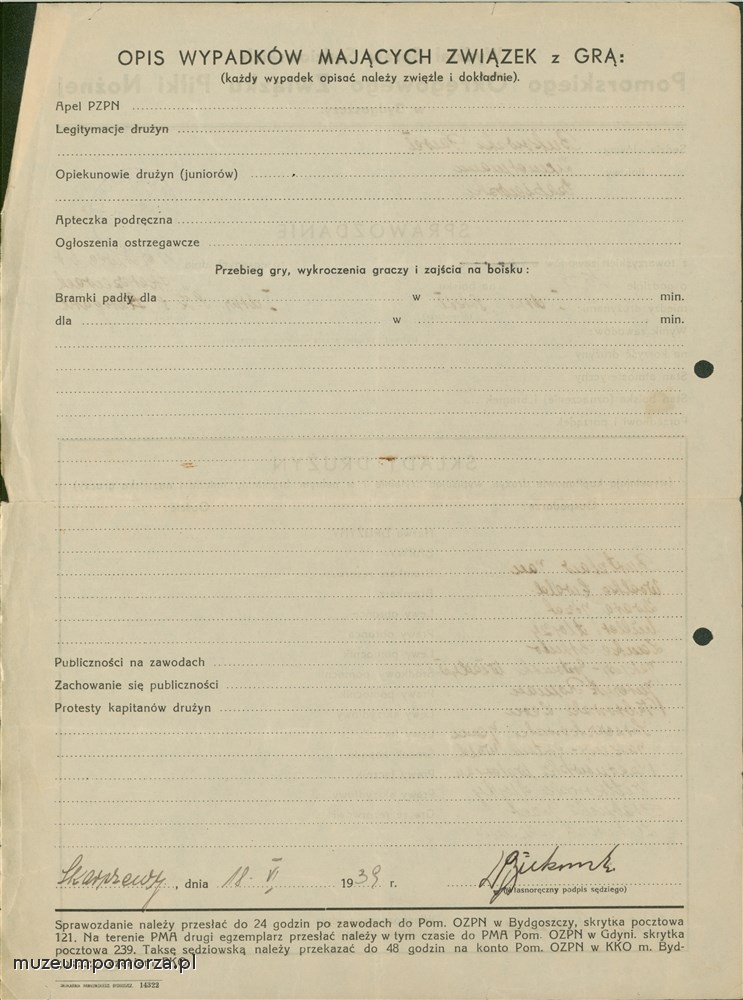 OPIS WYPADKÓW MAJĄCYCH ZWIĄZEK z GRĄ:
(każdy wypadek opisać należy zwięźle i dokładnie).
Apel PZPN
Legitymacje drużyn
Opiekunowie drużyn (juniorów)
Apteczka podręczna
Ogłoszenia ostrzegawcze
Przebieg gry, wykroczenia graczy i zajścia na boisku:
Bramki padły dla w min.
dla w min.
Publiczności na zawodach
Zachowanie się publiczności
Protesty kapitanów drużyn
Skarszewy, dnia 18. VI 1939 r.
(własnoręczny podpis sędziego)
Sprawozdanie należy przesłać do 24 godzin po zawodach do Pom. OZPN w Bydgoszczy, skrytka pocztowa
121. Na terenie PMA drugi egzemplarz przesłać należy w tym czasie do PMA Pom. OZPN w Gdyni. skrytka
pocztowa 239. Taksę sędziowską należy przekazać do 48 godzin na konto Pom. OZPN w KKO m. Byd-
muzeumpomorza.pl
14323